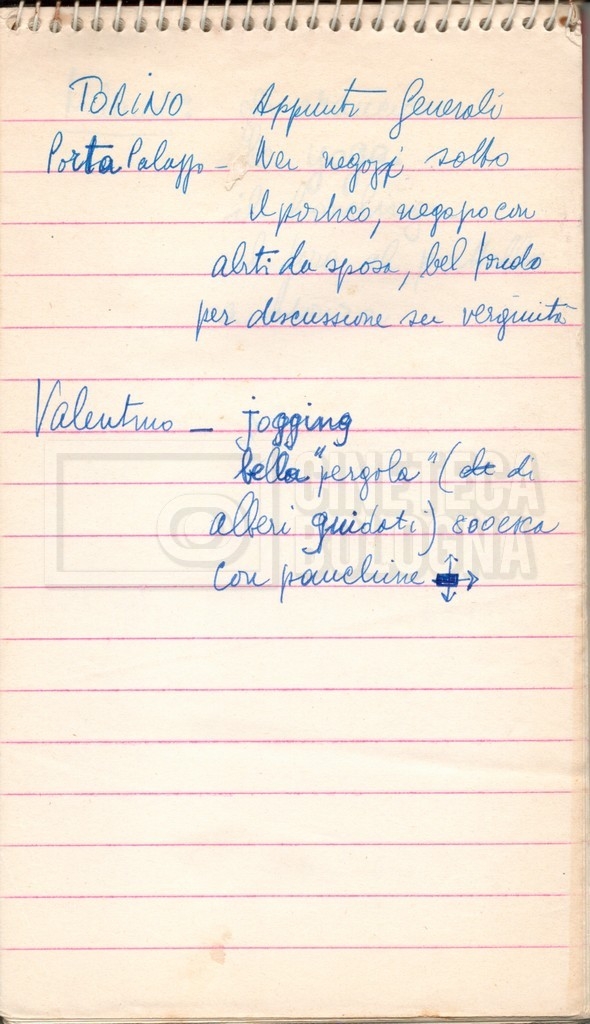 TORINO Appunti Generali
Porta Palazzo - Nei negozi sotto
il portico, negozio con
abiti da sposa, bel fondo
per discussione su verginità
Valentino - jogging
bella "pergola" (di
alberi guidati) 800esca
con panchine
CINETECA
BOLOGNA